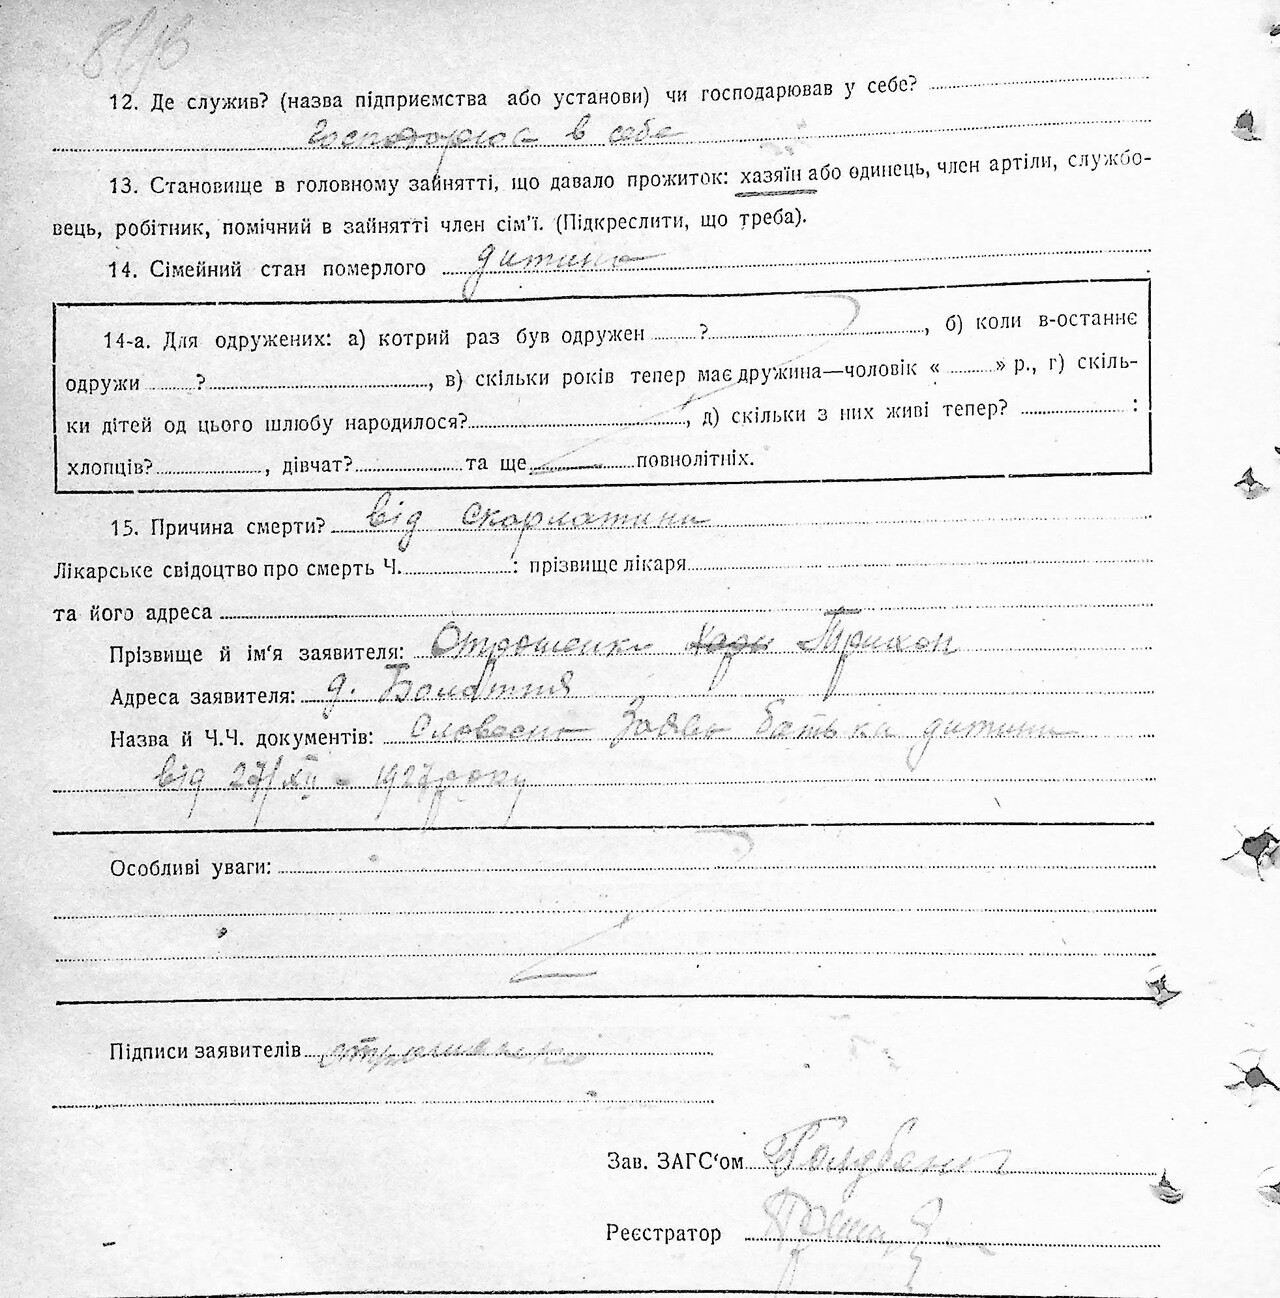 12. Де служив? (назва підприємства або установи) чи господарював у себе?
в себе
13. Становище в головному зайнятті, що давало прожиток: хазяїн або одинець, член артіли, службо-
вець, робітник, помічний в зайнятті член сім'ї. (Підкреслити, що треба).
14. Сімейний стан померлого дитина
14-а. Для одружених: а) котрий раз був одружен ? , б) коли в-останнє
одружи ? , в) скільки років тепер має дружина—чоловік « » р., г) скіль-
ки дітей од цього шлюбу народилося? , д) скільки з них живі тепер? :
хлопців? , дівчат? та ще повнолітніх.
15. Причина смерти? від Скарлатини
Лікарське свідоцтво про смерть Ч. : прізвище лікаря
та його адреса
Прізвище й ім'я заявителя: Трихон
Адреса заявителя: д.
Назва й Ч.Ч. документів: Словесна Заява батька дитини
від 27/XII - 1927 року
Особливі уваги:
Підписи заявителів
Зав. ЗАГС'ом
Реєстратор